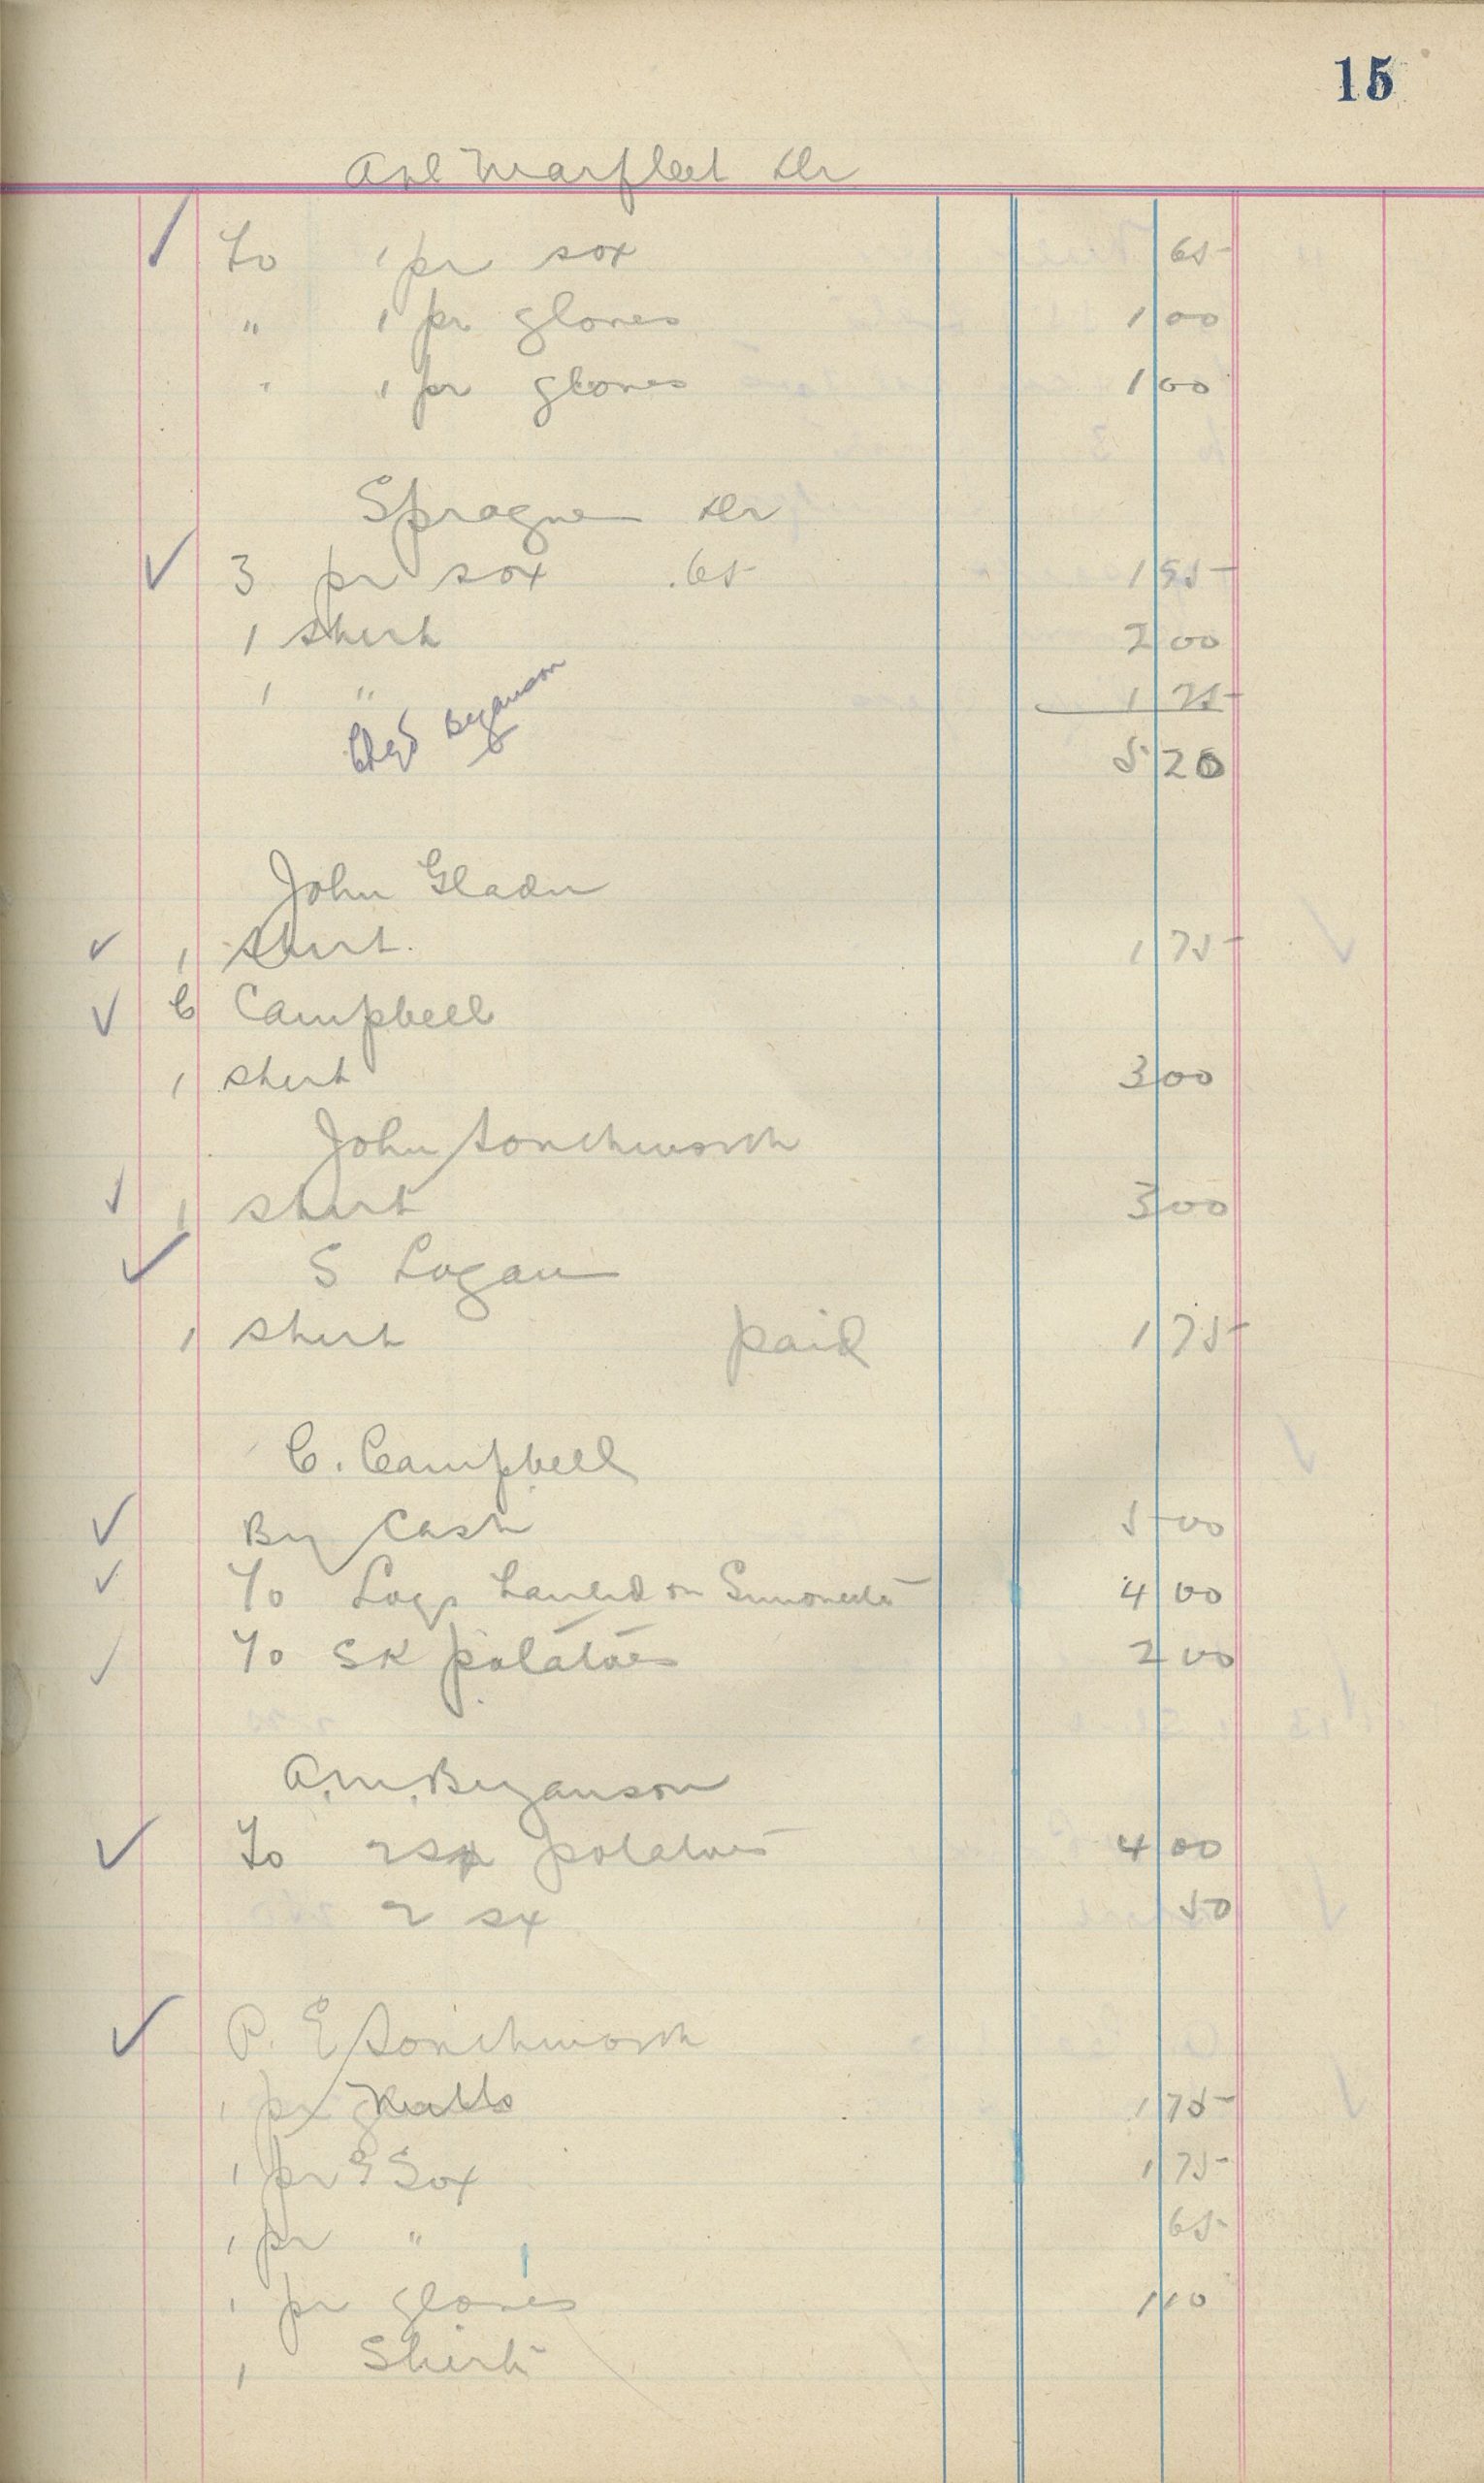 15
Marfleet Dr
To 1 pr sox 65
" 1 pr gloves 1 00
" 1 pr gloves 1 00
Sprague Dr
3 pr sox .65 1 95
1 shirt 2 00
1 " 1 25
Chgd Bezanson
5 20
John Gladu
1 shirt. 1 75
C Campbell
1 shirt 3 00
John Southworth
1 shirt 3 00
S Logan
1 shirt paid 1 75
C. Campbell
By Cash 5 00
To Logs hauled on 4 00
To SK potatoes 2 00
A.M. Bezanson
To 2 potatoes 4 00
2 sx 50
P. E Southworth
1 pr 1 75
1 pr G Sox 1 75
1 pr " 65
1 pr gloves 1 10
1 Shirt